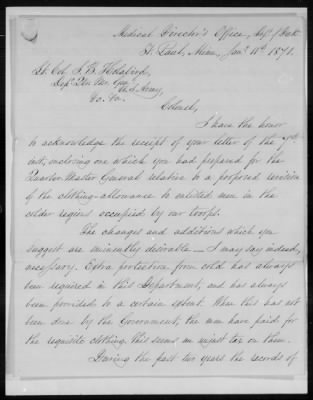 Medical Director's Office, Dep. of Dak.
St. Paul, Minn., Jany. 11th 1879.
Lt. Col. S. B. Holabird,
Dep. Qr. Mr. Gen.
U.S. Army,
Colonel,
I have the honor
to acknowledge the receipt of your letter of the 7th
inst., inclosing one which you had prepared for the
Quarter Master General relative to a proposed revision
of the clothing-allowance to enlisted men in the
colder regions occupied by our troops.
The changes and additions which you
suggest are eminently desirable — I may say indeed,
necessary. Extra protection from cold has always
been required in this Department, and has always
been provided to a certain extent. When this has not
been done by the Government, the men have paid for
the requisite clothing. This seems an unjust tax on them.
During the past two years the records of